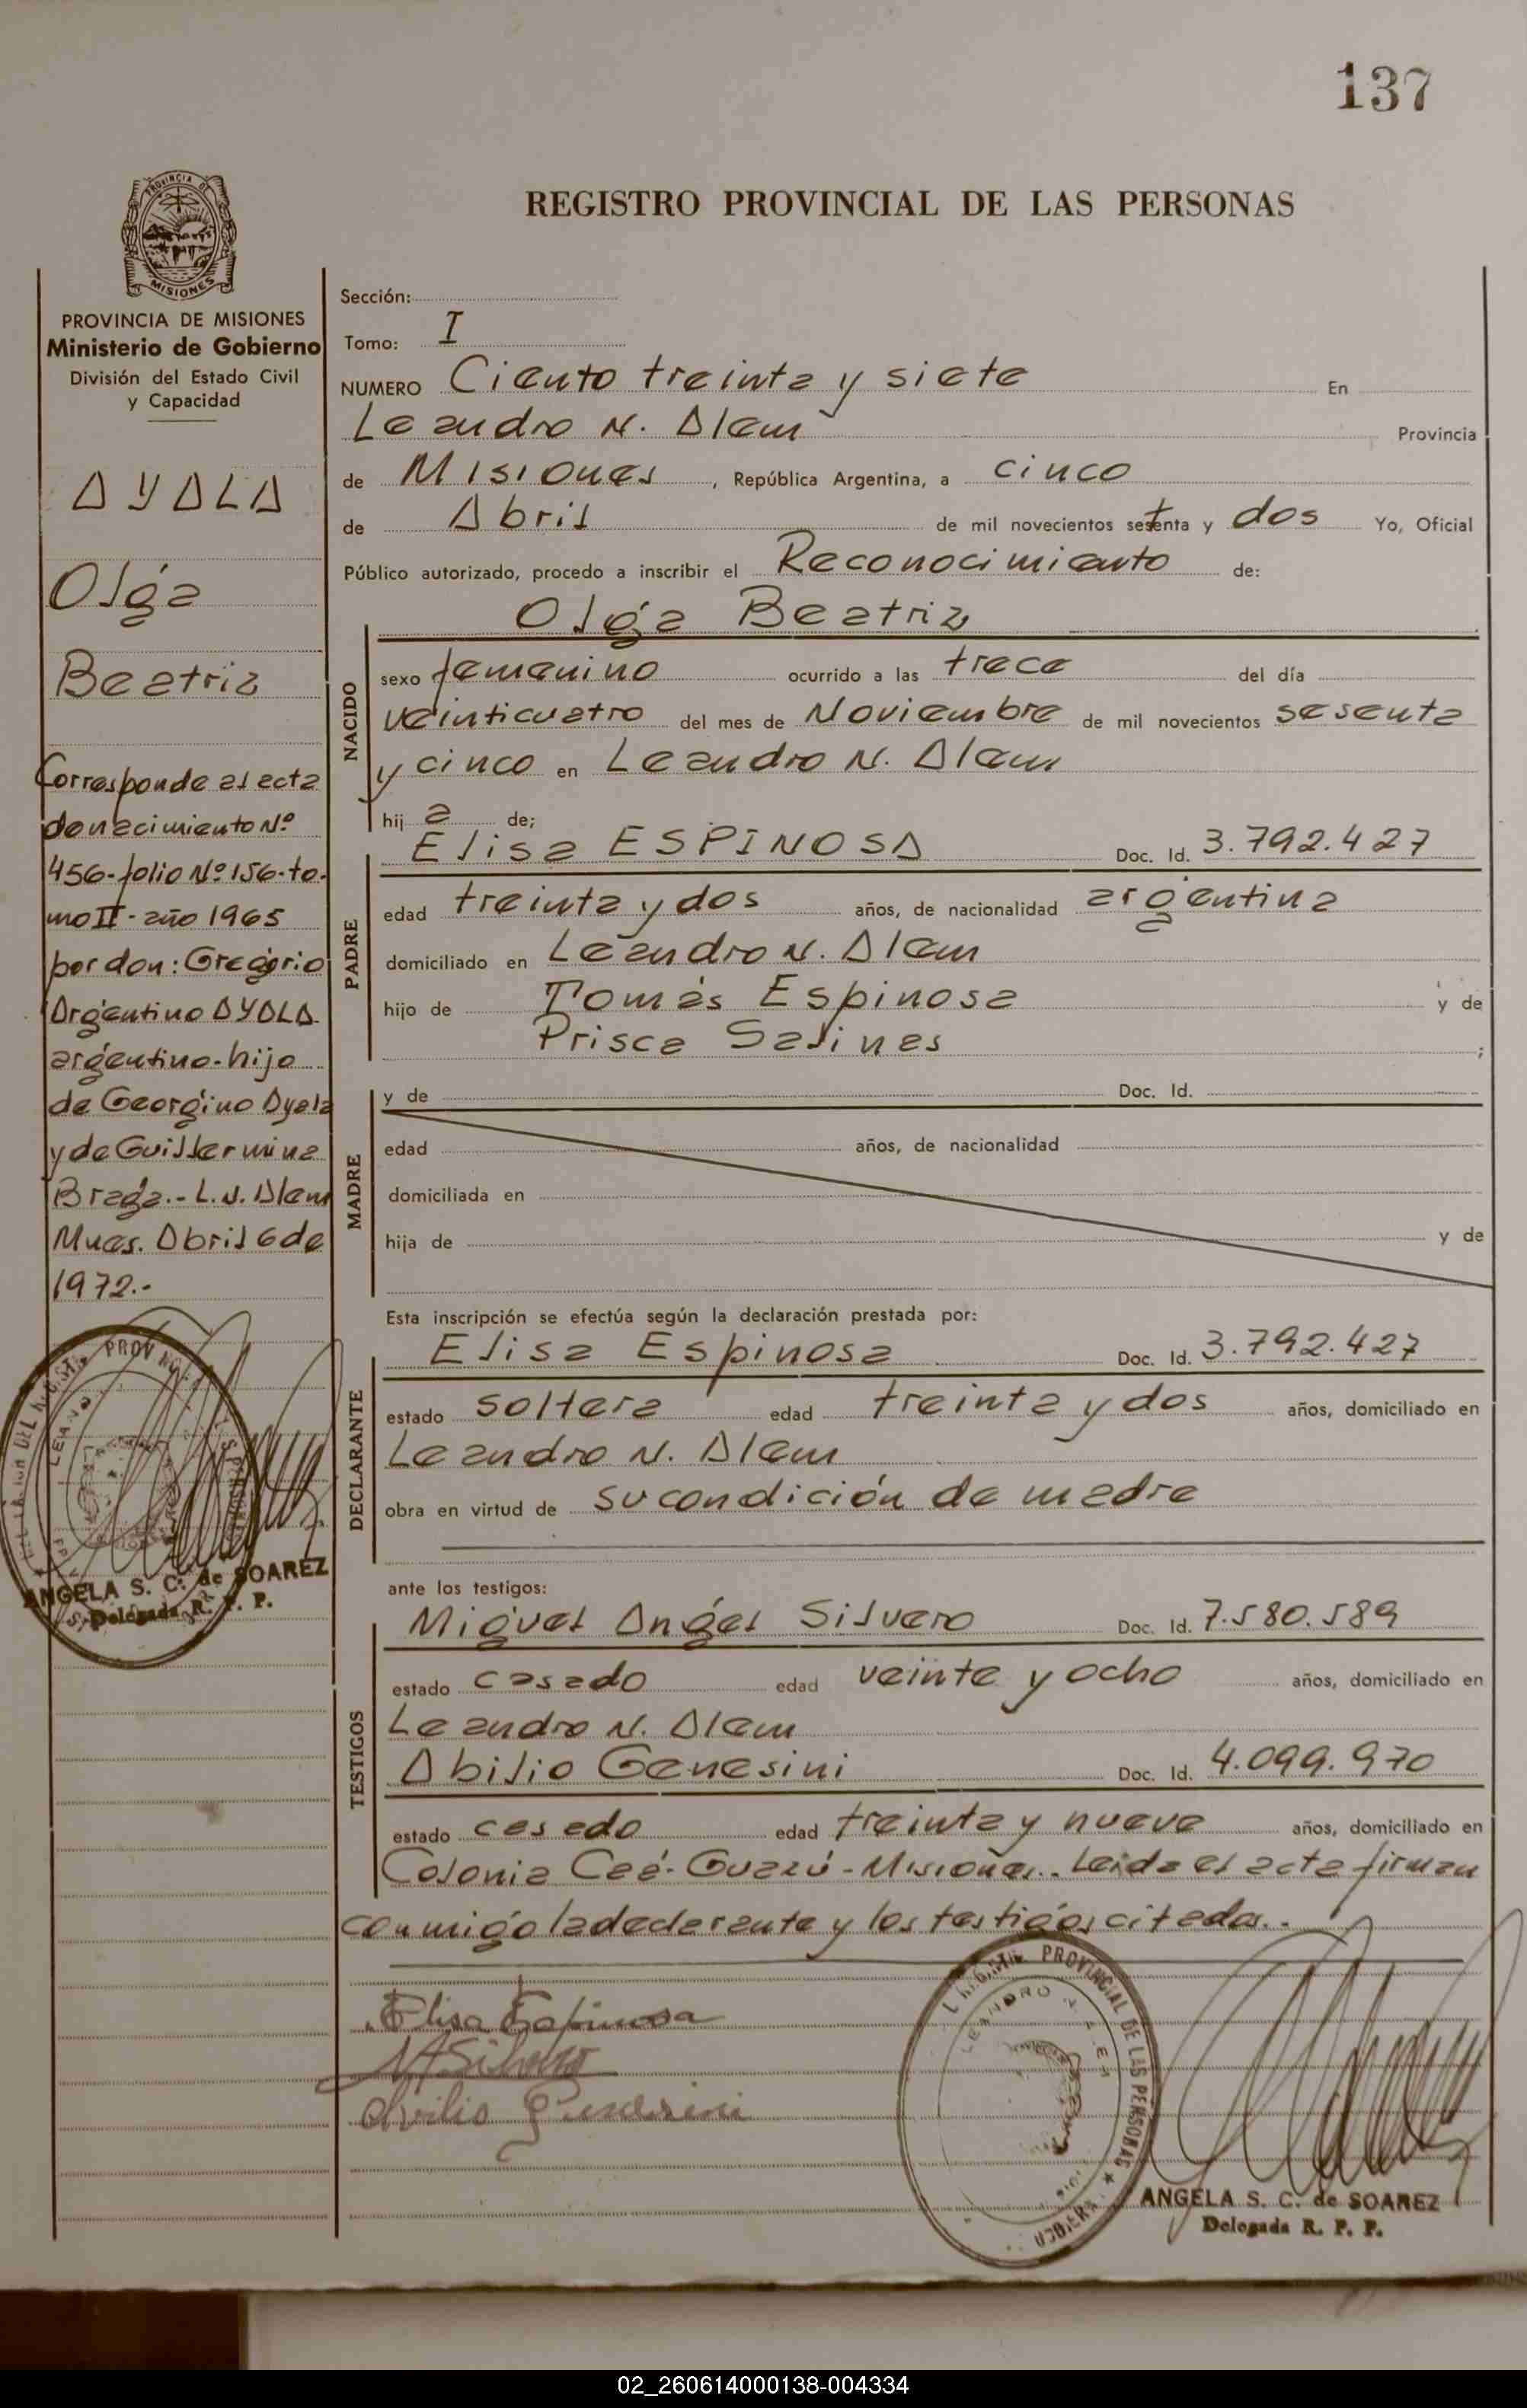 137
PROVINCIA DE
MISIONES
REGISTRO PROVINCIAL DE LAS PERSONAS
PROVINCIA DE MISIONES
Ministerio de Gobierno
División del Estado Civil
y Capacidad
AYALA
Olga
Beatriz
Corresponde al acta
de nacimiento Nº
456-folio Nº 156-to-
mo II-año 1965
por don: Gregorio
Argentino AYALA
argentino-hijo
de Georgino Ayala
y de Guillermina
Braga.- L.N. Alem
Mnes. Abril 6 de
1972.-
ANGELA S. C. de SOAREZ
Delegada R. P. P.
Sección:
Tomo: I
NUMERO Ciento treinta y siete En
Leandro N. Alem Provincia
de Misiones, República Argentina, a cinco
de Abril de mil novecientos setenta y dos Yo, Oficial
Público autorizado, procedo a inscribir el Reconocimiento de:
Olga Beatriz
NACIDO
sexo femenino ocurrido a las trece del día
veinticuatro del mes de Noviembre de mil novecientos sesenta
y cinco en Leandro N. Alem
hij a de;
Elisa ESPINOSA Doc. Id. 3.792.427
PADRE
edad treinta y dos años, de nacionalidad argentina
domiciliado en Leandro N. Alem
hijo de Tomás Espinosa y de
Prisca Salinas ;
MADRE
y de Doc. Id.
edad años, de nacionalidad
domiciliada en
hija de y de
Esta inscripción se efectúa según la declaración prestada por:
Elisa Espinosa Doc. Id. 3.792.427
DECLARANTE
estado soltera edad treinta y dos años, domiciliado en
Leandro N. Alem
obra en virtud de su condición de madre
ante los testigos:
Miguel Angel Silvero Doc. Id. 7.580.589
TESTIGOS
estado casado edad veinte y ocho años, domiciliado en
Leandro N. Alem
Abilio Genesini Doc. Id. 4.099.970
estado casado edad treinta y nueve años, domiciliado en
Colonia Caá-Guazú-Misiones.. Leida el acta firman
conmigo la declarante y los testigos citados.-
Elisa Espinosa
PROVINCIAL DE LAS PERSONAS
LEANDRO N. ALEM
ANGELA S. C. de SOAREZ
Delegada R. P. P.
02_260614000138-004334